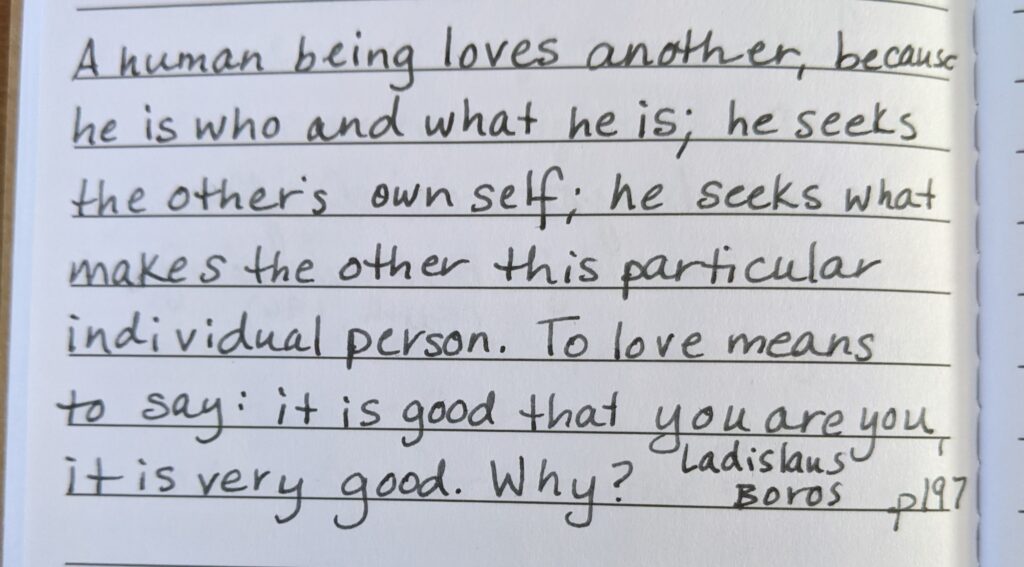 A human being loves another, because
he is who and what he is; he seeks
the other's own self; he seeks what
makes the other this particular
individual person. To love means
to say: it is good that you are you,
it is very good. Why? Ladislaus
Boros p197